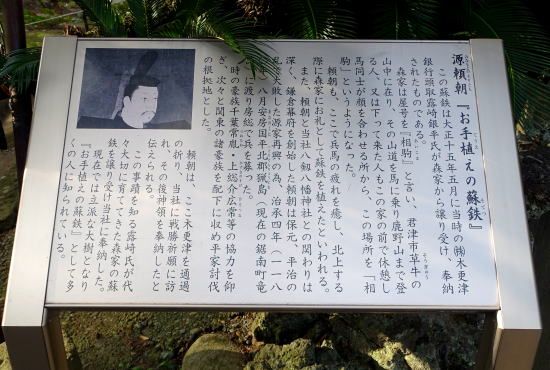 源頼朝『お手植えの蘇鉄』
この蘇鉄は大正十五年五月に当時の㈱木更津
銀行頭取露崎銀平氏が森家から譲り受け、奉納
されたものである。
森家は屋号を『相駒』と言い、君津市草牛の
山中に在り、その山道を馬に乗り鹿野山まで登
る人、又は下って来た人もこの家の前で休憩し
馬同士が顔を合わせる所から、この場所を「相
駒」というようになった。
頼朝も、ここで兵馬の疲れを癒し、北上する
際に森家にお礼として蘇鉄を植えたといわれる。
また、頼朝と当社八剱八幡神社との関わりは
深く、鎌倉幕府を創始した頼朝は保元、平治の
乱で大敗した源家再興の為、治承四年（一一八
〇）八月安房国平北郡猟島（現在の鋸南町竜
島）に渡り房総で兵を募った。
時の豪族千葉常胤・上総介広常等の協力を仰
ぎ、次々と関東の諸豪族を配下に収め平家討伐
の根拠地とした。
頼朝は、ここ木更津を通過
の折り、当社に戦勝祈願に訪
れ、その後神領を奉納したと
伝えられる。
この事蹟を知る露崎氏が代
々大切に育ててきた森家の蘇
鉄を譲り受け当社に奉納した。
現在では立派な大樹となり
『お手植えの蘇鉄』として多
くの人に知られている。